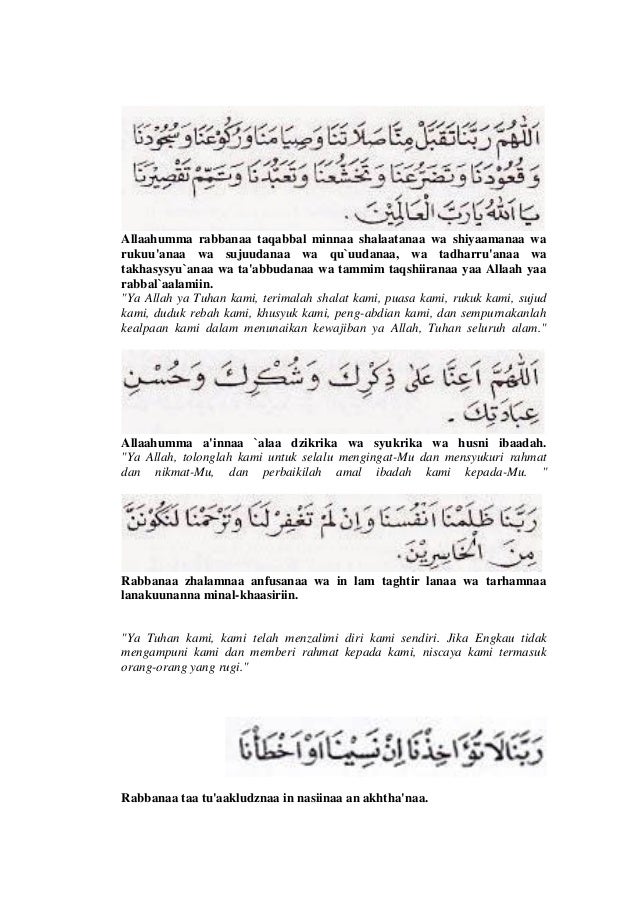 اَللّٰهُمَّ رَبَّنَا تَقَبَّلْ مِنَّا صَلَاتَنَا وَصِيَامَنَا وَرُكُوْعَنَا وَسُجُوْدَنَا
وَقُعُوْدَنَا وَتَضَرُّعَنَا وَتَخَشُّعَنَا وَتَعَبُّدَنَا وَتَمِّمْ تَقْصِيْرَنَا
يَا اَللهُ يَارَبَّ الْعَالَمِيْنَ.
Allaahumma rabbanaa taqabbal minnaa shalaatanaa wa shiyaamanaa wa
rukuu'anaa wa sujuudanaa wa qu`uudanaa, wa tadharru'anaa wa
takhasysyu`anaa wa ta'abbudanaa wa tammim taqshiiranaa yaa Allaah yaa
rabbal`aalamiin.
"Ya Allah ya Tuhan kami, terimalah shalat kami, puasa kami, rukuk kami, sujud
kami, duduk rebah kami, khusyuk kami, peng-abdian kami, dan sempurnakanlah
kealpaan kami dalam menunaikan kewajiban ya Allah, Tuhan seluruh alam."
اَللّٰهُمَّ اَعِنَّا عَلٰى ذِكْرِكَ وَشُكْرِكَ وَحُسْنِ
عِبَادَتِكَ.
Allaahumma a'innaa `alaa dzikrika wa syukrika wa husni ibaadah.
"Ya Allah, tolonglah kami untuk selalu mengingat-Mu dan mensyukuri rahmat
dan nikmat-Mu, dan perbaikilah amal ibadah kami kepada-Mu. "
رَبَّنَا ظَلَمْنَا اَنْفُسَنَا وَاِنْ لَمْ تَغْفِرْ لَنَا وَتَرْحَمْنَا لَنَكُوْنَنَّ
مِنَ الْخَاسِرِيْنَ.
Rabbanaa zhalamnaa anfusanaa wa in lam taghtir lanaa wa tarhamnaa
lanakuunanna minal-khaasiriin.
"Ya Tuhan kami, kami telah menzalimi diri kami sendiri. Jika Engkau tidak
mengampuni kami dan memberi rahmat kepada kami, niscaya kami termasuk
orang-orang yang rugi."
رَبَّنَا لَا تُؤَاخِذْنَا اِنْ نَسِيْنَا اَوْ اَخْطَأْنَا
Rabbanaa taa tu'aakludznaa in nasiinaa an akhtha'naa.